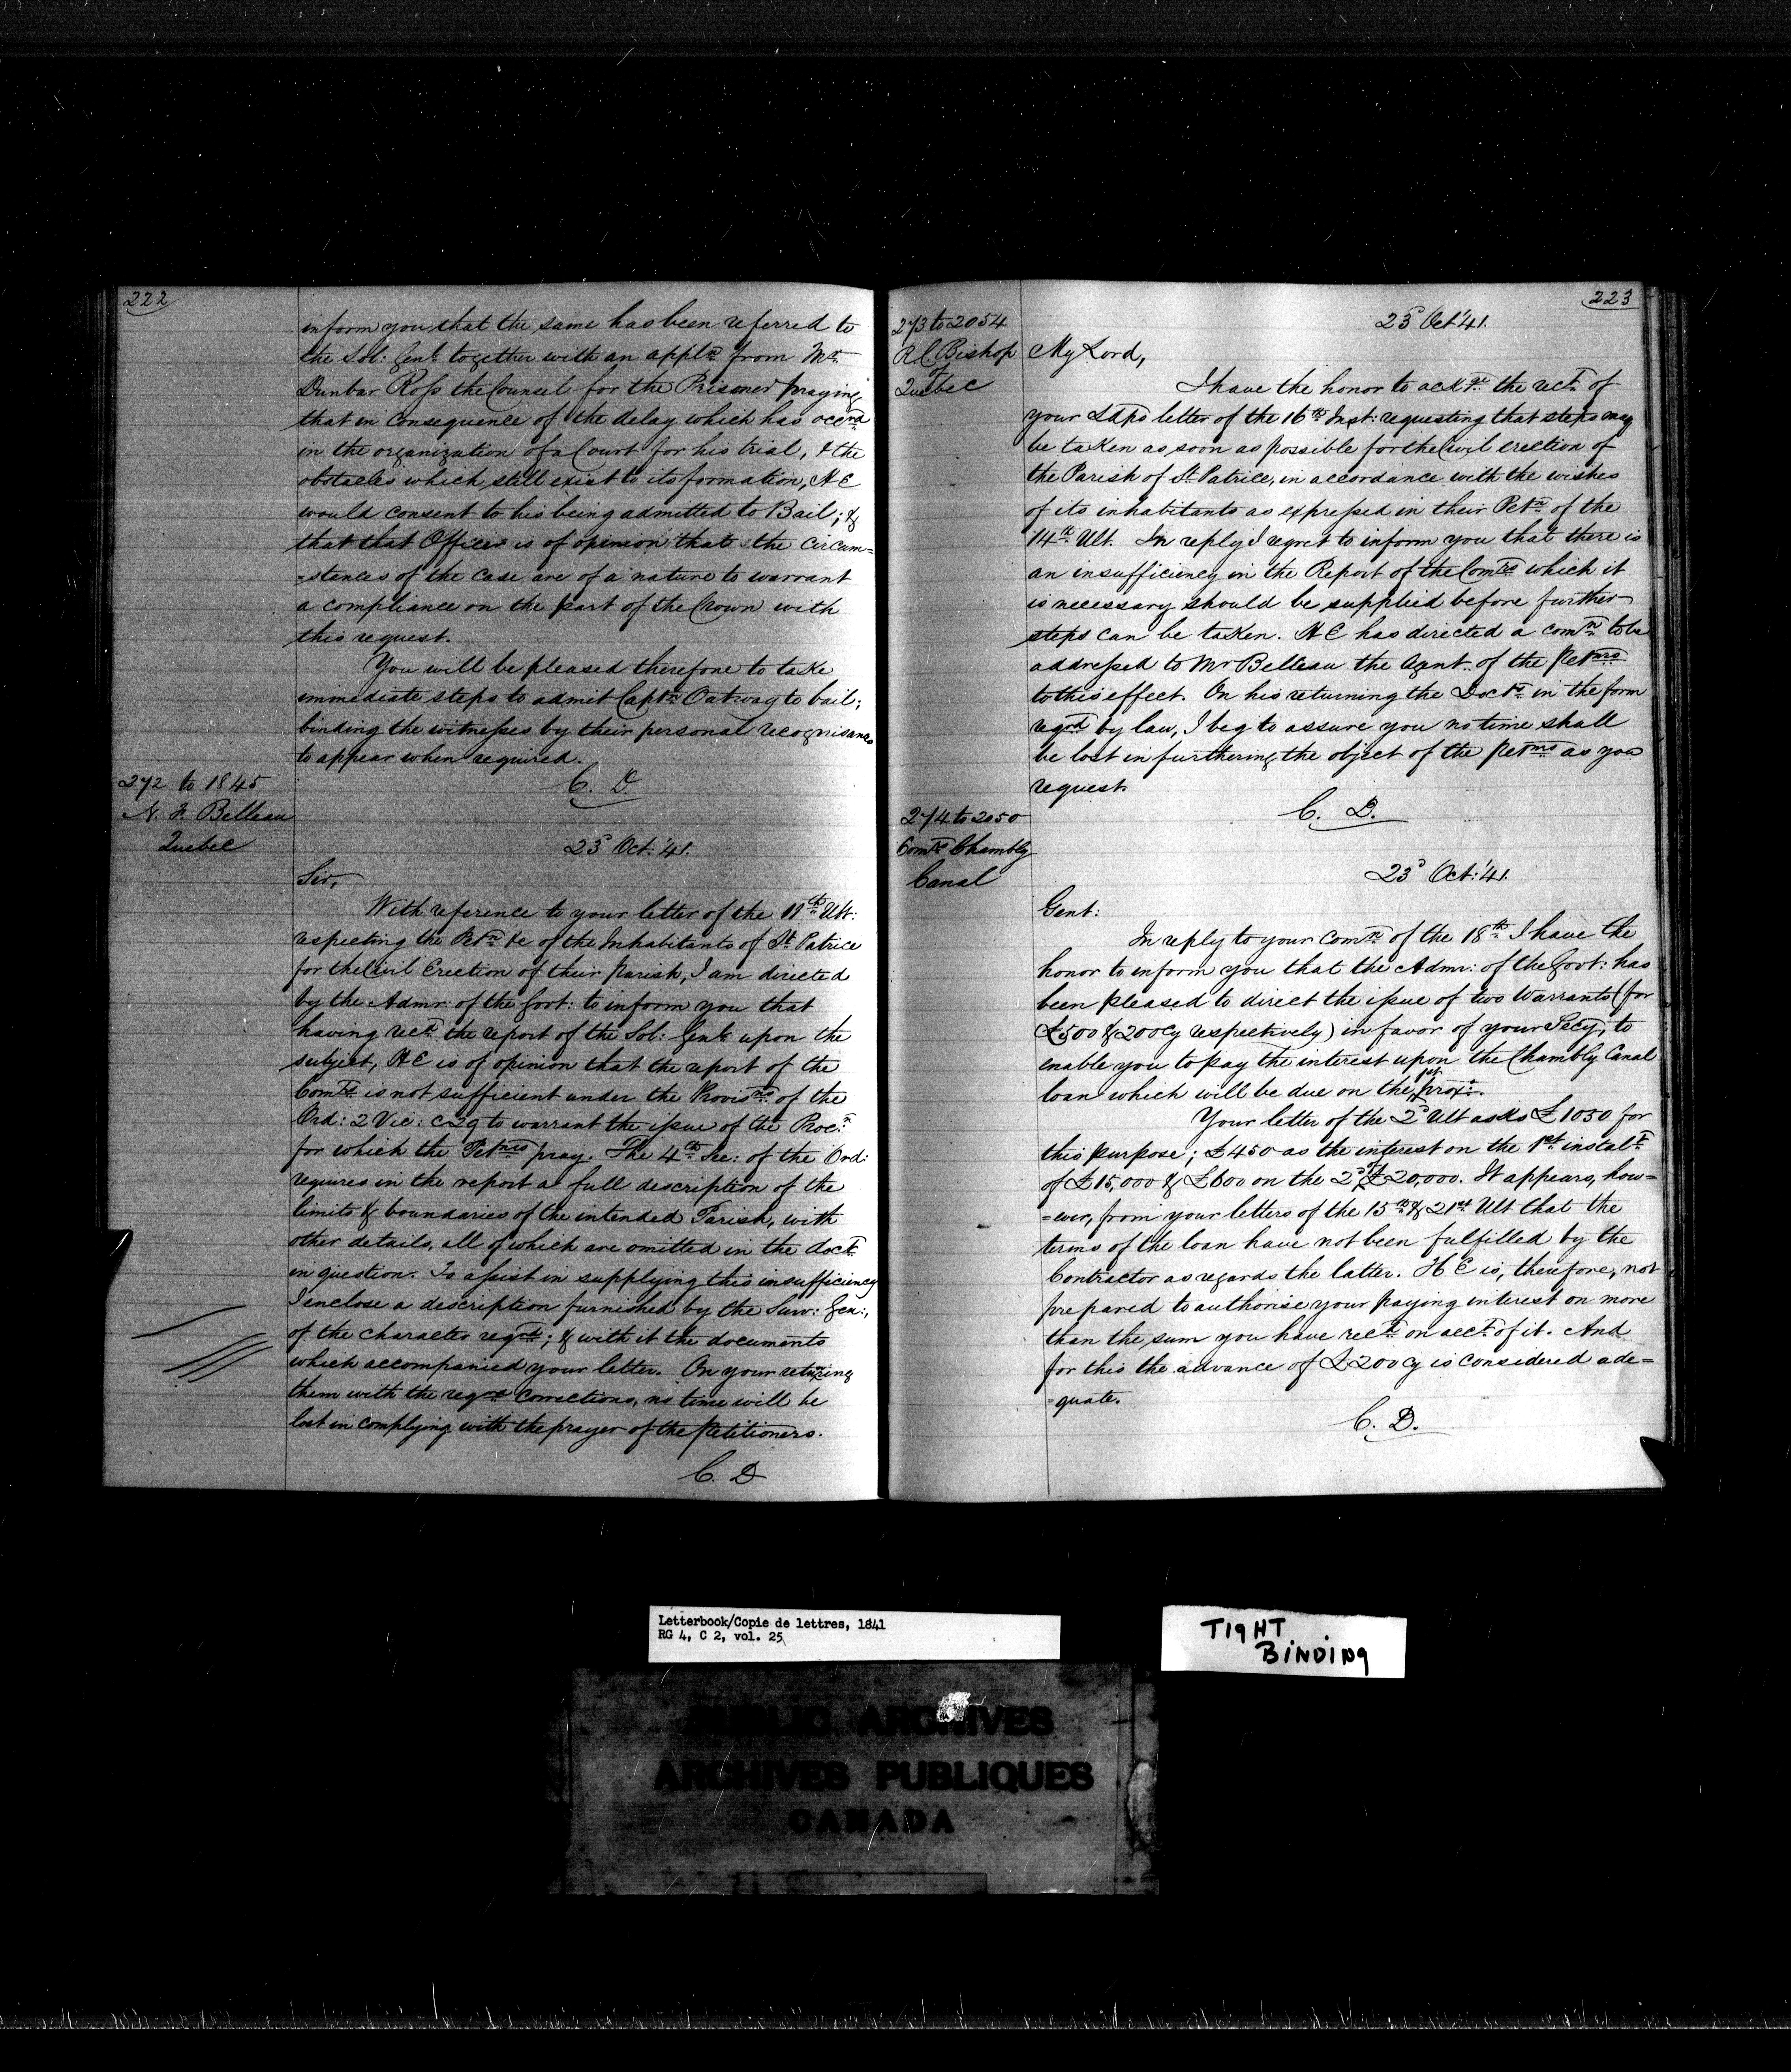 222
inform you that the same has been referred to
the Sol: Genl. together with an appln. from Mr.
Dunbar Ross the Counsel for the Prisoner praying
that in consequence of the delay which has occrd.
in the organization of a Court for his trial, & the
obstacles which still exist to its formation, H E
would consent to his being admitted to Bail; &
that that Officer is of opinion that the circum=
=stances of the case are of a nature to warrant
a compliance on the part of the Crown with
this request.
You will be pleased therefore to take
immediate steps to admit Captn. Oatway to bail;
binding the witnesses by their personal recognisances
to appear when required.
C. D.
272 to 1845
N. F. Belleau
Quebec
23d Oct. '41.
Sir,
With reference to your letter of the 11th Ult:
respecting the Petn. &c of the Inhabitants of St. Patrice
for the Civil Erection of their Parish, I am directed
by the Admr: of the Govt: to inform you that
having recd. the report of the Sol: Genl. upon the
subject, H E is of opinion that the report of the
Comrs. is not sufficient under the Provisns. of the
Ord: 2 Vic: c 29 to warrant the issue of the Procn.
for which the Petnrs pray. The 4th Sec: of the Ord:
requires in the report a full description of the
limits & boundaries of the intended Parish, with
other details, all of which are omitted in the doct.
in question. To assist in supplying this insufficiency
I enclose a description furnished by the Surv: Gen:,
of the character reqrd.; & with it the documents
which accompanied your letter. On your returning
them with the reqrd corrections, no time will be
lost in complying with the prayer of the Petitioners.
C. D
223
273 to 2054
R C. Bishop
of
Quebec
23d Oct. '41.
My Lord,
I have the honor to ackge. the rect. of
your Ldps letter of the 16th Inst: requesting that steps may
be taken as soon as possible for the Civil erection of
the Parish of St. Patrice, in accordance with the wishes
of its inhabitants as expressed in their Petn. of the
14th Ult. In reply I regret to inform you that there is
an insufficiency in the Report of the Comrs. which it
is necessary should be supplied before further
steps can be taken. H E has directed a comn. to be
addressed to Mr Belleau the Agnt. of the Petnrs
to this effect. On his returning the Docts. in the form
reqrd. by law, I beg to assure you no time shall
be lost in furthering the object of the Petnrs as you
request.
C. D.
274 to 2050
Comrs. Chambly
Canal
23d Oct: '41.
Gent:
In reply to your comn. of the 18th I have the
honor to inform you that the Admr: of the Govt: has
been pleased to direct the issue of two Warrants (for
£500 & 200 cy respectively) in favor of your Secy, to
enable you to pay the interest upon the Chambly Canal
loan which will be due on the 1st proxo.
Your letter of the 2d Ult asks £1050 for
this purpose; £450 as the interest on the 1st instalt.
of £15,000 & £600 on the 2d of £20,000. It appears, how=
=ever, from your letters of the 15th & 21st Ult that the
terms of the loan have not been fulfilled by the
Contractor as regards the latter. H E is, therefore, not
prepared to authorise your paying interest on more
than the sum you have recd. on acct. of it. And
for this the advance of £200 cy is considered ade=
=quate.
C. D.
Letterbook/Copie de lettres, 1841
RG 4, C 2, vol. 25
TIGHT
BINDING
PUBLIC ARCHIVES
ARCHIVES PUBLIQUES
CANADA